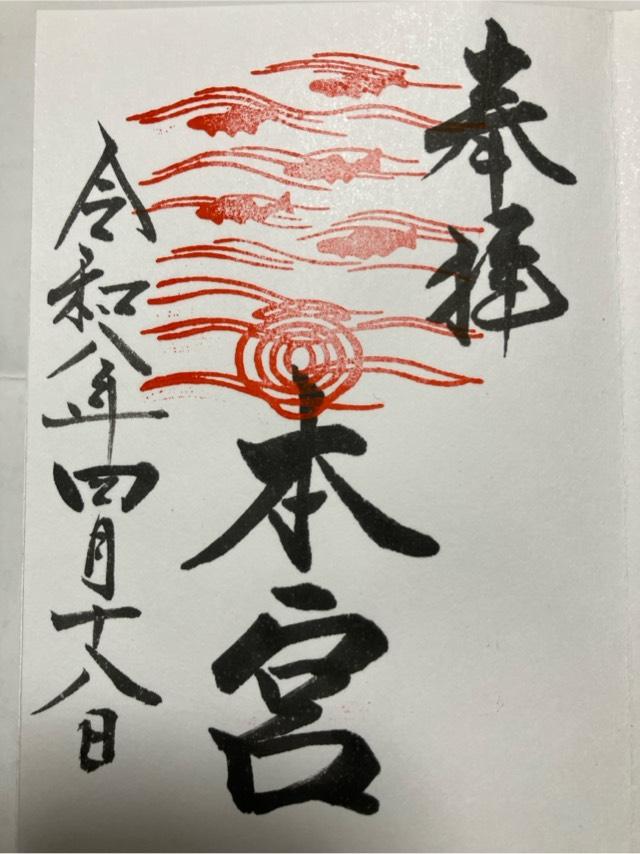 奉拝
本宮
令和八年四月十八日